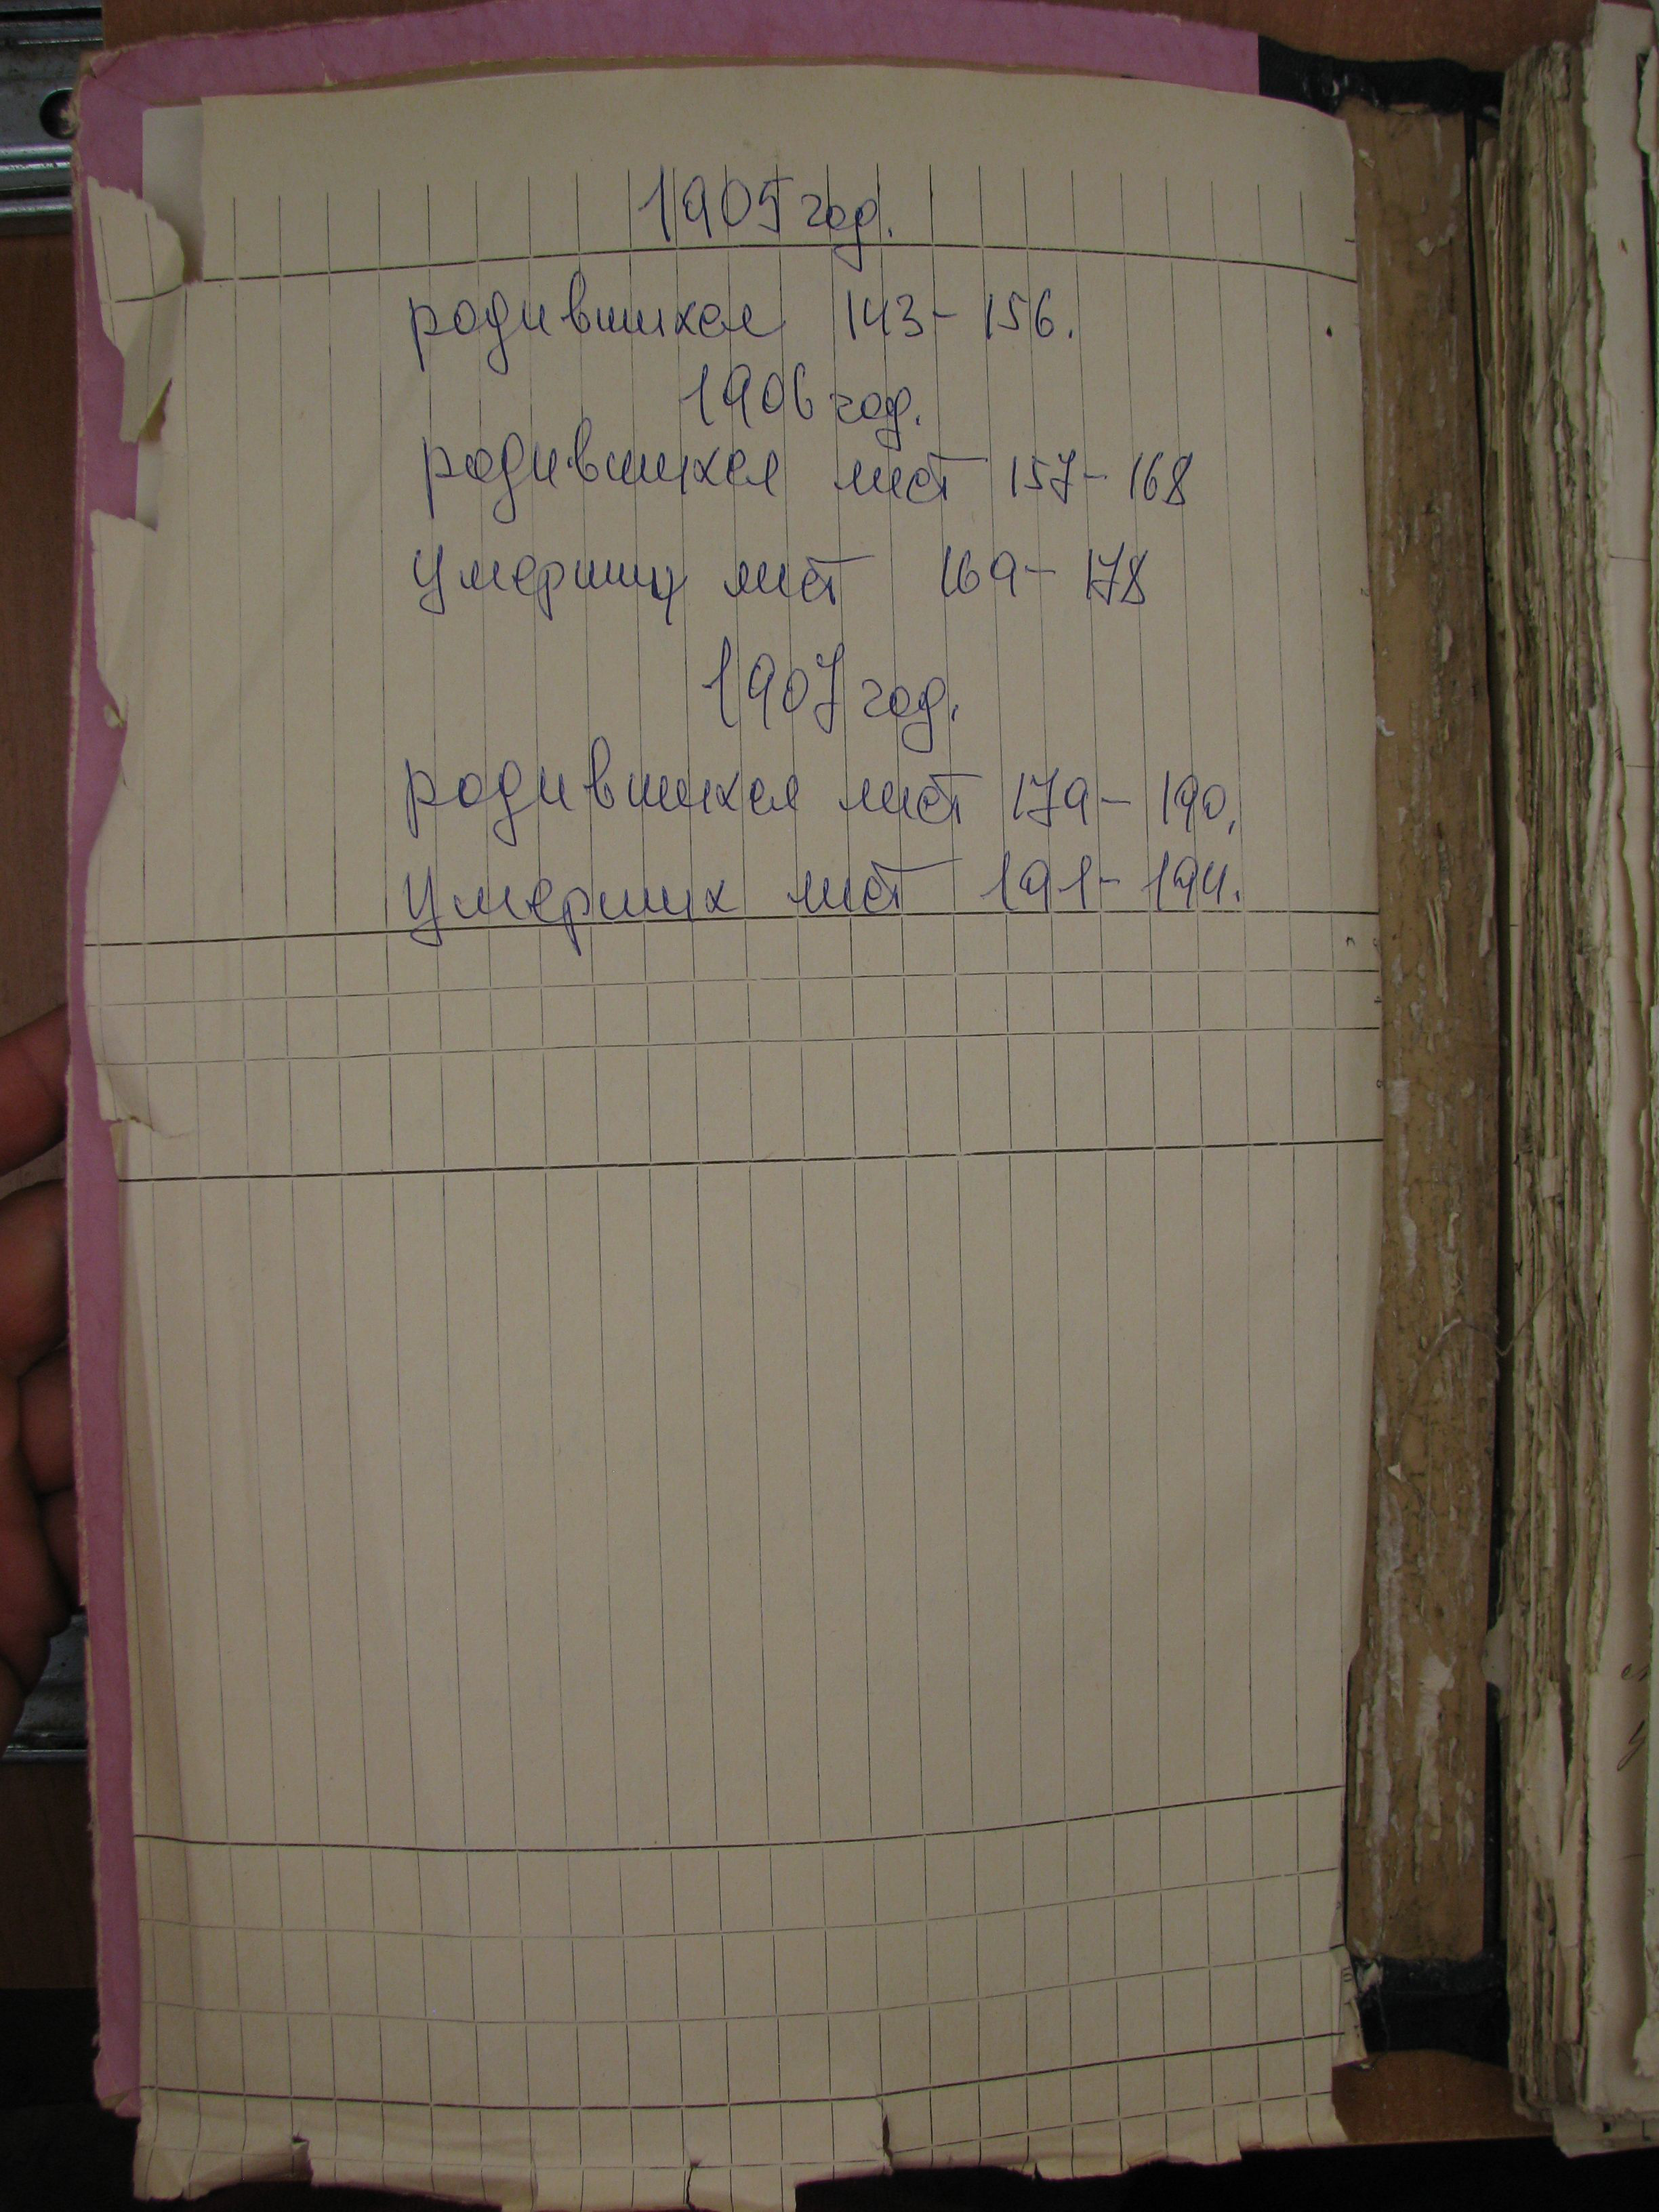 1905 год.
родившихся 143-156.
1906 год.
родившихся лист 157-168
умерших лист 169-178
1907 год.
родившихся лист 179-190.
умерших лист 191-194.